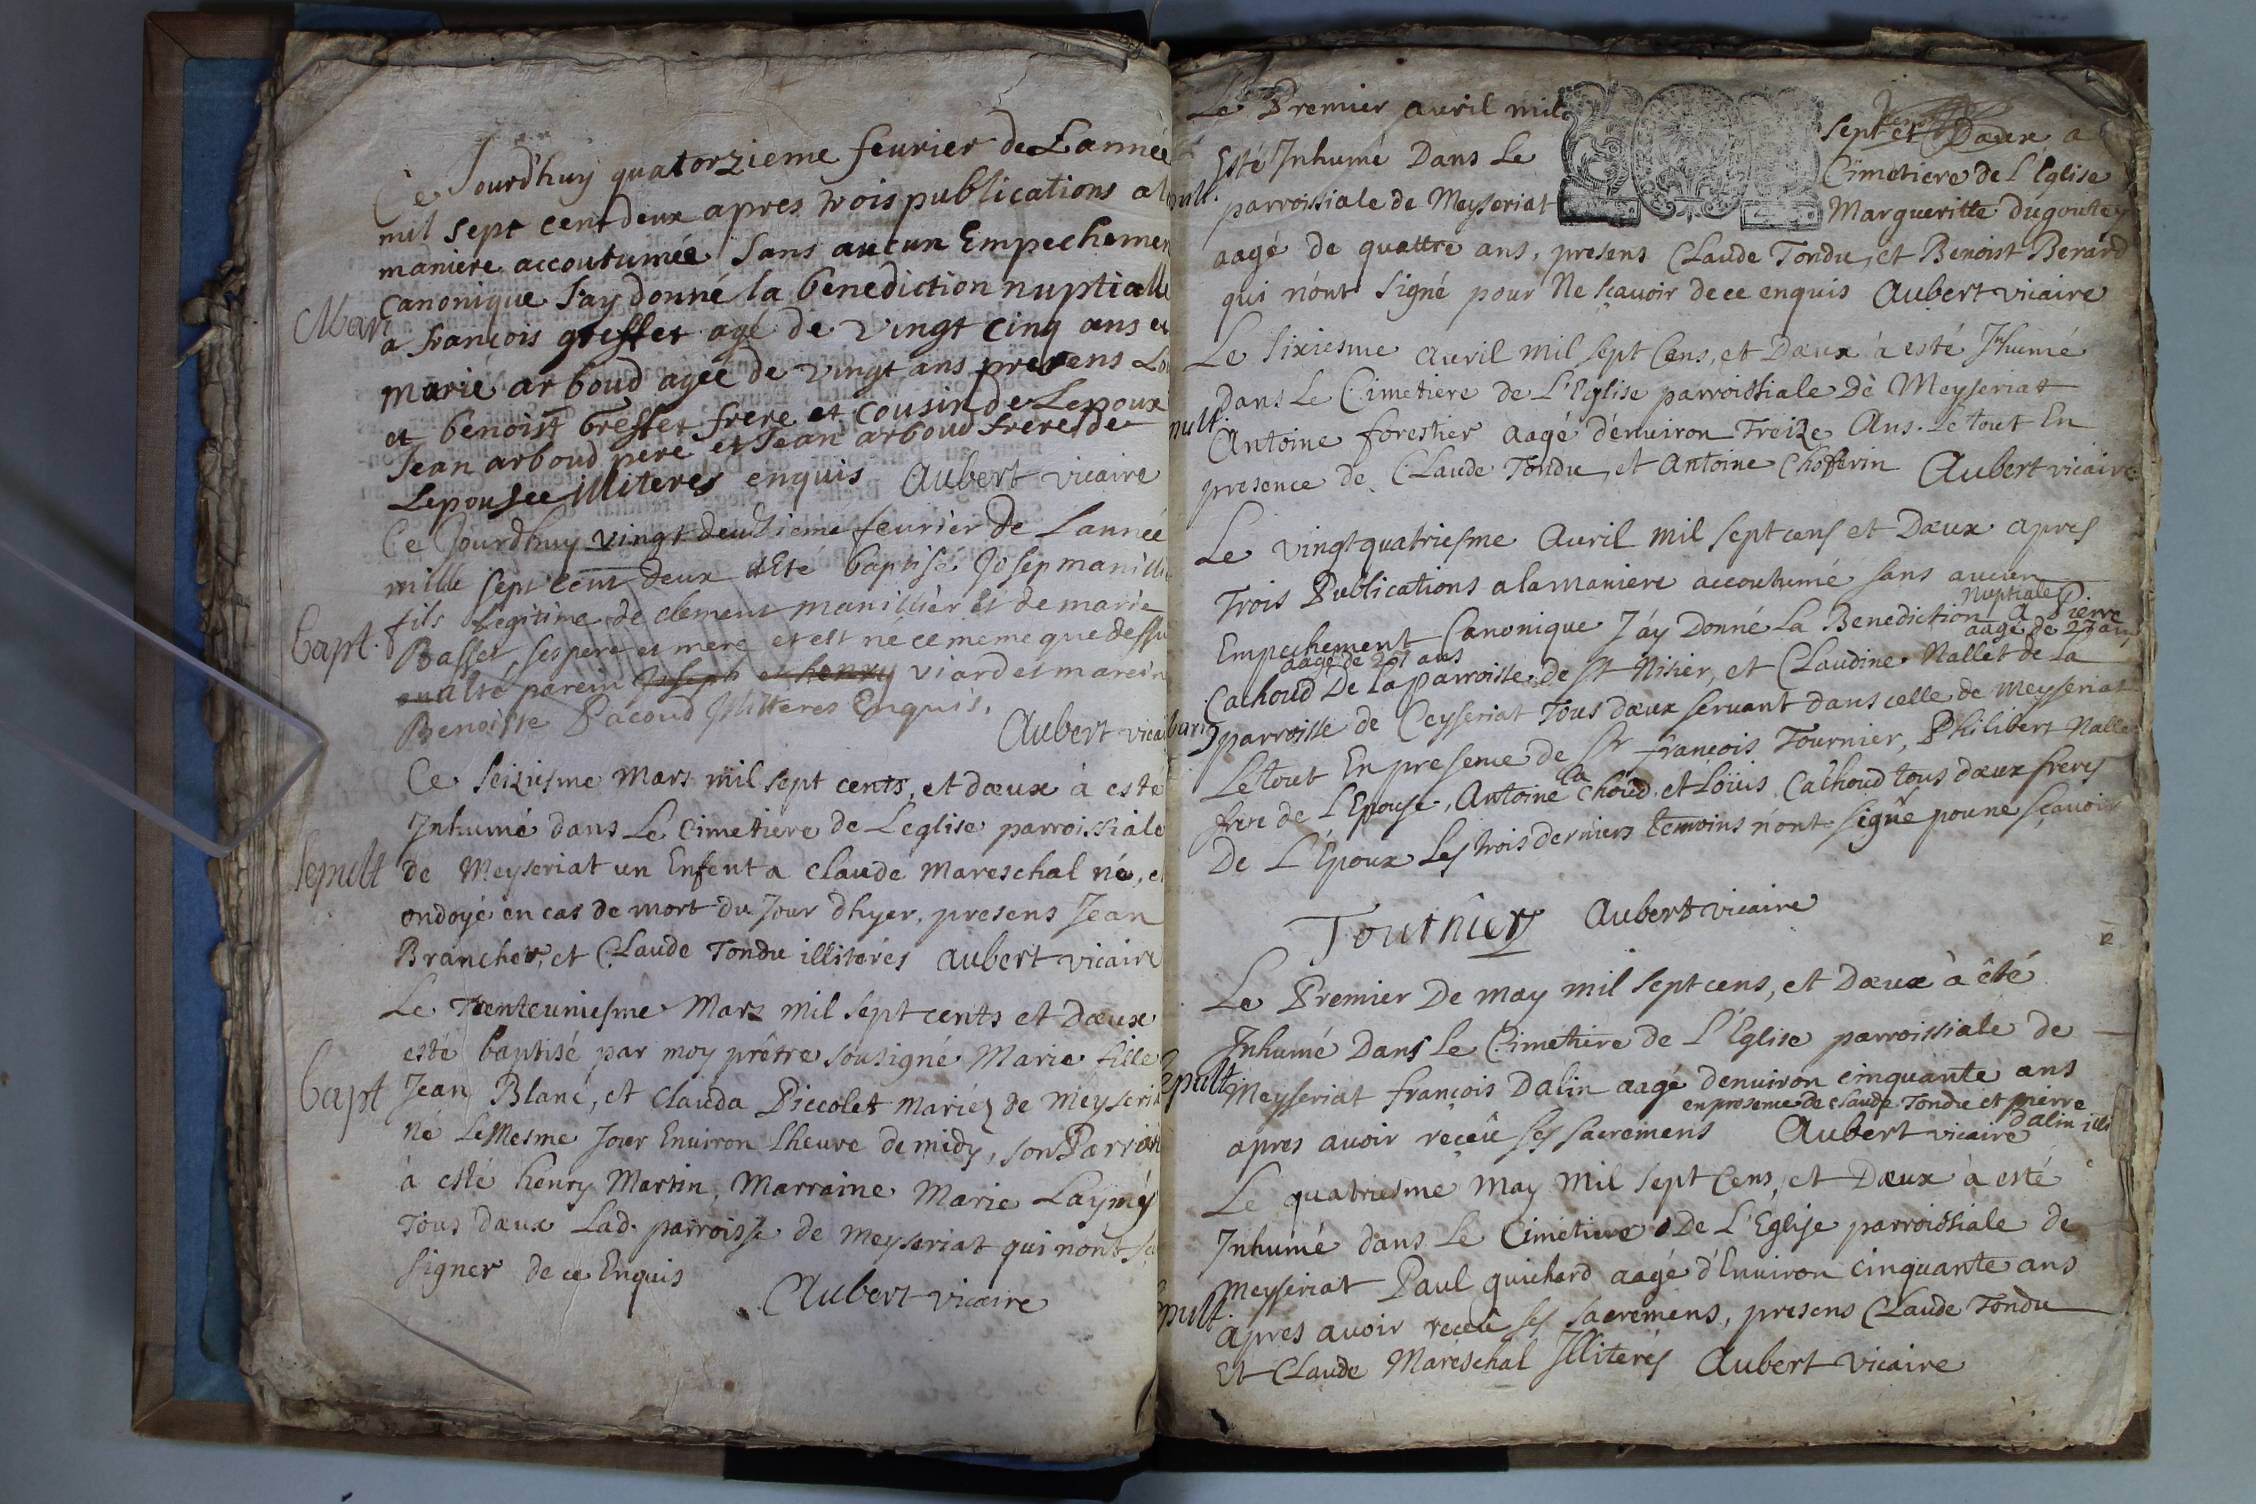 Ce Jourdhuy quatorzieme feurier de Lannée
mil sept cent deux apres trois publications a la
maniere accoutumée sans aucun Empechemen
Mar
canonique J'ay donné la benediction nuptialle
a francois gresset agé de vingt cinq ans et
marie arboud agée de vingt ans presens
et benoist bresset frere et cousin de Lepoux
Jean arboud pere et Jean arboud freres de
Lepousee illiteres enquis Aubert vicaire
Ce Jourdhuy vingt deuxieme feurier de Lannée
mille sept cent deux a Eté baptisé Josep manillie
bapt.
fils Legitime de clement manillier et de marie
Basset ses pere et mere et est né ce meme que dessu
parein Joseph et henry viard et marein
Benoiste Pacoud Jlliteres Enquis.
Aubert vicai
Ce seiziesme Mars mil sept cents, et dœux à este
Jnhumé dans Le Cimetiere de Leglise parroissiale
sepult
de Meyseriat un Enfent a Claude Mareschal né, et
ondoyé en cas de mort du Jour dhyer, presens Jean
Brancher, et Claude Tondu illiterés Aubert vicaire
Le Trenteuniesme Mars mil sept cents et Dœux
esté baptisé par moy prêtre sousigné Marie fille
bapt
Jean Blanc, et Clauda Piccolet mariez de Meyseria
né Le Mesme Jour Enuiron Lheure de midy, son Parrain
à esté henry Martin, Marraine Marie Laymé
Tous dœux Lad. parroisse de Meyseriat qui nont
signer de ce Enquis
Aubert vicaire
Le Premier auril mil sept et Dœux a
Esté Jnhumé Dans Le Cimetiere de L'Eglise
pult.
parroissiale de Meyseriat Margueritte dugoutey
aagé de quattre ans, presens Claude Tondu, et Benoist Berard
qui n'ont signé pour Ne sçauoir de ce enquis Aubert vicaire
Le sixiesme auril mil sept Cens, et Dœux à esté Jhumé
dans Le Cimetiere de L'Eglise parroissiale de Meyseriat
pult
Antoine forestier aagé d'enuiron Treize Ans. Le tout En
presence de Claude Tondu, et Antoine Aubert vicaire
Le vingtquatriesme Auril mil sept cens et Dœux apres
Trois Publications a la maniere accoutumé sans aucun
nuptiale
Empechement Canonique J'áy Donné La Benediction a Pierre
aagé de ans aagé de 27 ans
Cathoud De la parroisse de St Nisier, et Claudine Nallet de La
parroisse de Ceyseriat Tous dœux seruant dans celle de Meyseriat
Le tout En presence de Sr francois Tournier, Philibert Nallet
frere de L'Epouse, Antoine Cachoud, et Loüis Cathoud tous dœux freres
De L'Epoux Les trois derniers temoins n'ont signé pou ne sçauoir
Tournier Aubert vicaire
Le Premier De may mil sept cens, et Dœux à êté
Jnhumé Dans Le Cimetiere de L'Eglise parroissiale de
epult
Meyseriat françois Dalin aagé denuiron cinquante ans
en presence de Claude Tondu et pierre
dalin illi
apres auoir reçeû ses sacremens Aubert vicaire
Le quatriesme may mil sept Cens, et Dœux à esté
Jnhumé dans Le Cimetiere De L'Eglise parroissiale de
Meyseriat Paul guichard aagé d'Enuiron cinquante ans
pult
apres auoir reçeû ses sacremens, presens Claude Tondu
Et Claude Mareschal Jlliterés Aubert vicaire